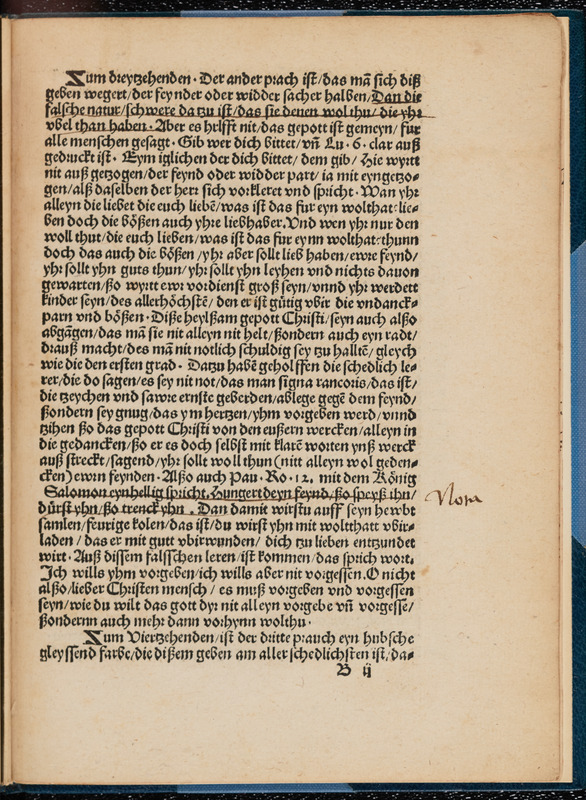 Zum dreytzehenden. Der ander prach ist/das mā sich diß
geben wegert/der feynder oder widder sacher halben/Dan die
falsche natur/schwere da tzu ist/das sie denen wol thu/die yhr
vbel than haben. Aber es hrlfft nit/das gepott ist gemeyn/fur
alle menschen gesagt. Gib wer dich bittet/vn̄ Lu. 6. clar auß
gedruckt ist. Eym iglichen der dich bittet/dem gib/Hie wyrtt
nit auß getzogen/der feynd oder widder part/ia mit eyngetzo⸗
gen/alß daselben der herr sich vorkleret vnd spricht. Wan yhr
alleyn die liebet die euch liebē/was ist das fur eyn wolthat⸗lie⸗
ben doch die bößen auch yhre liebhaber. Vnd wen yhr nur den
woll thut/die euch lieben/was ist das fur eynn wolthat⸗thunn
doch das auch die bößen/yhr aber sollt lieb haben/ewre feynd/
yhr sollt yhn guts thun/yhr sollt yhn leyhen vnd nichts dauon
gewarten/ßo wyrtt ewr vordienst groß seyn/vnd yhr werdett
kinder seyn/des allerhöchstē/den er ist gütig vbir die vndanck⸗
parn vnd bößen. Diße heylßam gepott Christi/seyn auch alßo
abgāgen/das mā sie nit alleyn nit helt/ßondern auch eyn radt/
drauß macht/des mā nit notlich schuldig sey tzu halltē/gleych
wie die den ersten grad. Datzu habē geholffen die schedlich le⸗
rer/die do sagen/es sey nit not/das man signa rancoris/das ist/
die tzeychen vnd sawre ernste geberden/ablege gegē dem feynd/
ßondern sey gnug/das ym hertzen/yhm vorgeben werd/vnnd
tzihen ßo das gepott Christi von den eußern wercken/alleyn in
die gedancken/ßo er es doch selbst mit klarē worten ynß werck
auß streckt/sagend/yhr sollt woll thun (nitt alleyn wol geden⸗
cken) ewrn feynden. Alßo auch Pau. Ro. 12. mit dem König
Salomon eynhellig spricht. Hungert deyn feynd/ßo speyß ihn/
dürst yhn/ßo trenck yhn. Dan damit wirstu auff seyn hewbt
samlen/feurige kolen/das ist/du wirst yhn mit wolthatt vbir⸗
laden/das er mit gutt vbirwunden/dich tzu lieben enttzundet
wirt. Auß dissem falsschen leren/ist kommen/das sprich wort.
Ich wills yhm vorgeben/ich wills aber nit vorgessen. O nicht
alßo/lieber Christen mensch/es muß vorgeben vnd vorgessen
seyn/wie du wilt das gott dyr nit alleyn vorgebe vn̄ vorgesse/
ßondernn auch mehr dann vorhynn wolthu.
Zum Viertzehenden/ist der dritte prauch eyn hubsche
gleyssend farbe/die dißem geben am aller schedlichsten ist/da⸗
B ij
Nota